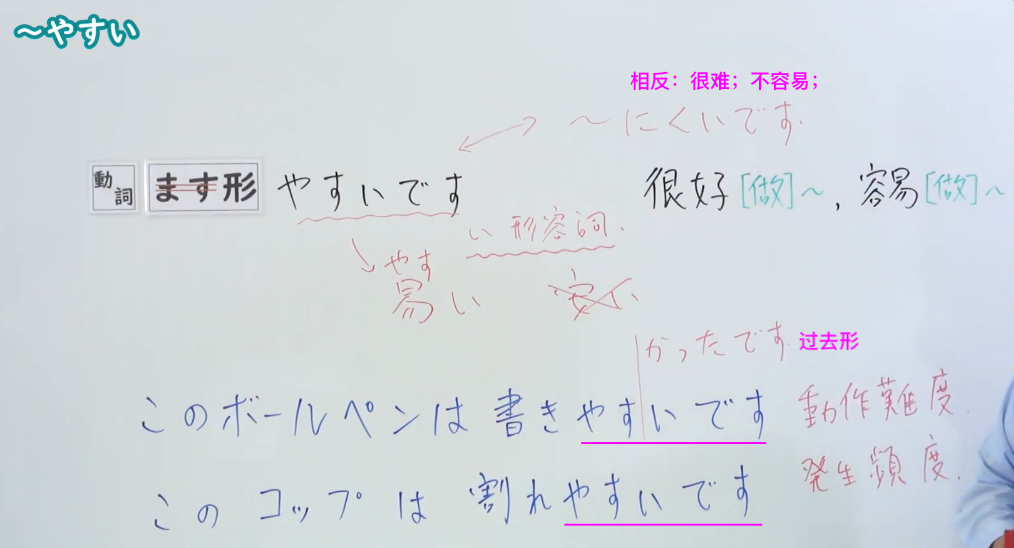 ～やすい
相反：很难；不容易；
～にくいです
動詞 ます形 やすいです 很好[做]～，容易[做]～
い形容詞.
やす
易い 安い
かったです 过去形
このボールペンは書きやすいです 動作難度.
このコップは割れやすいです 発生頻度.